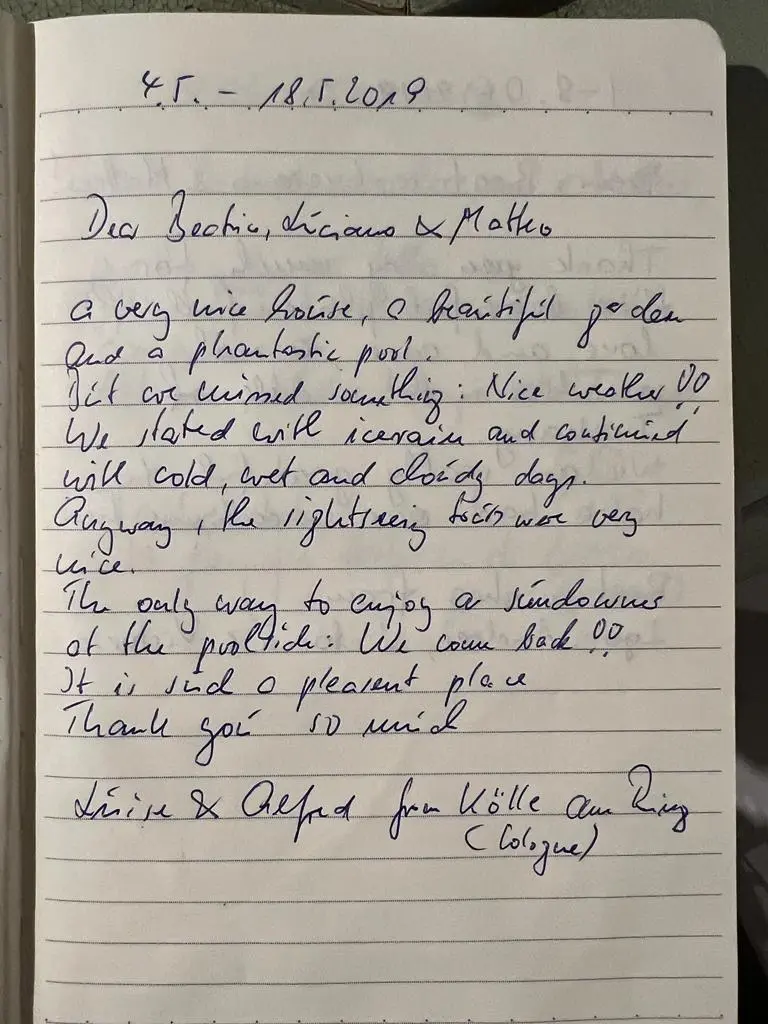 4.5. – 18.5.2019
Dear Beatrice, Luciano & Matteo
a very nice house, a beautiful garden
and a phantastic pool.
But we missed something: Nice weather!!
We started with icerain and continued
with cold, wet and cloudy days.
Anyway, the sightseeing tours were very
nice.
The only way to enjoy a sundowner
at the poolside: We come back!!
It is such a pleasent place
Thank you so much
Luise & Alfred from Kölle am Ring
(Cologne)